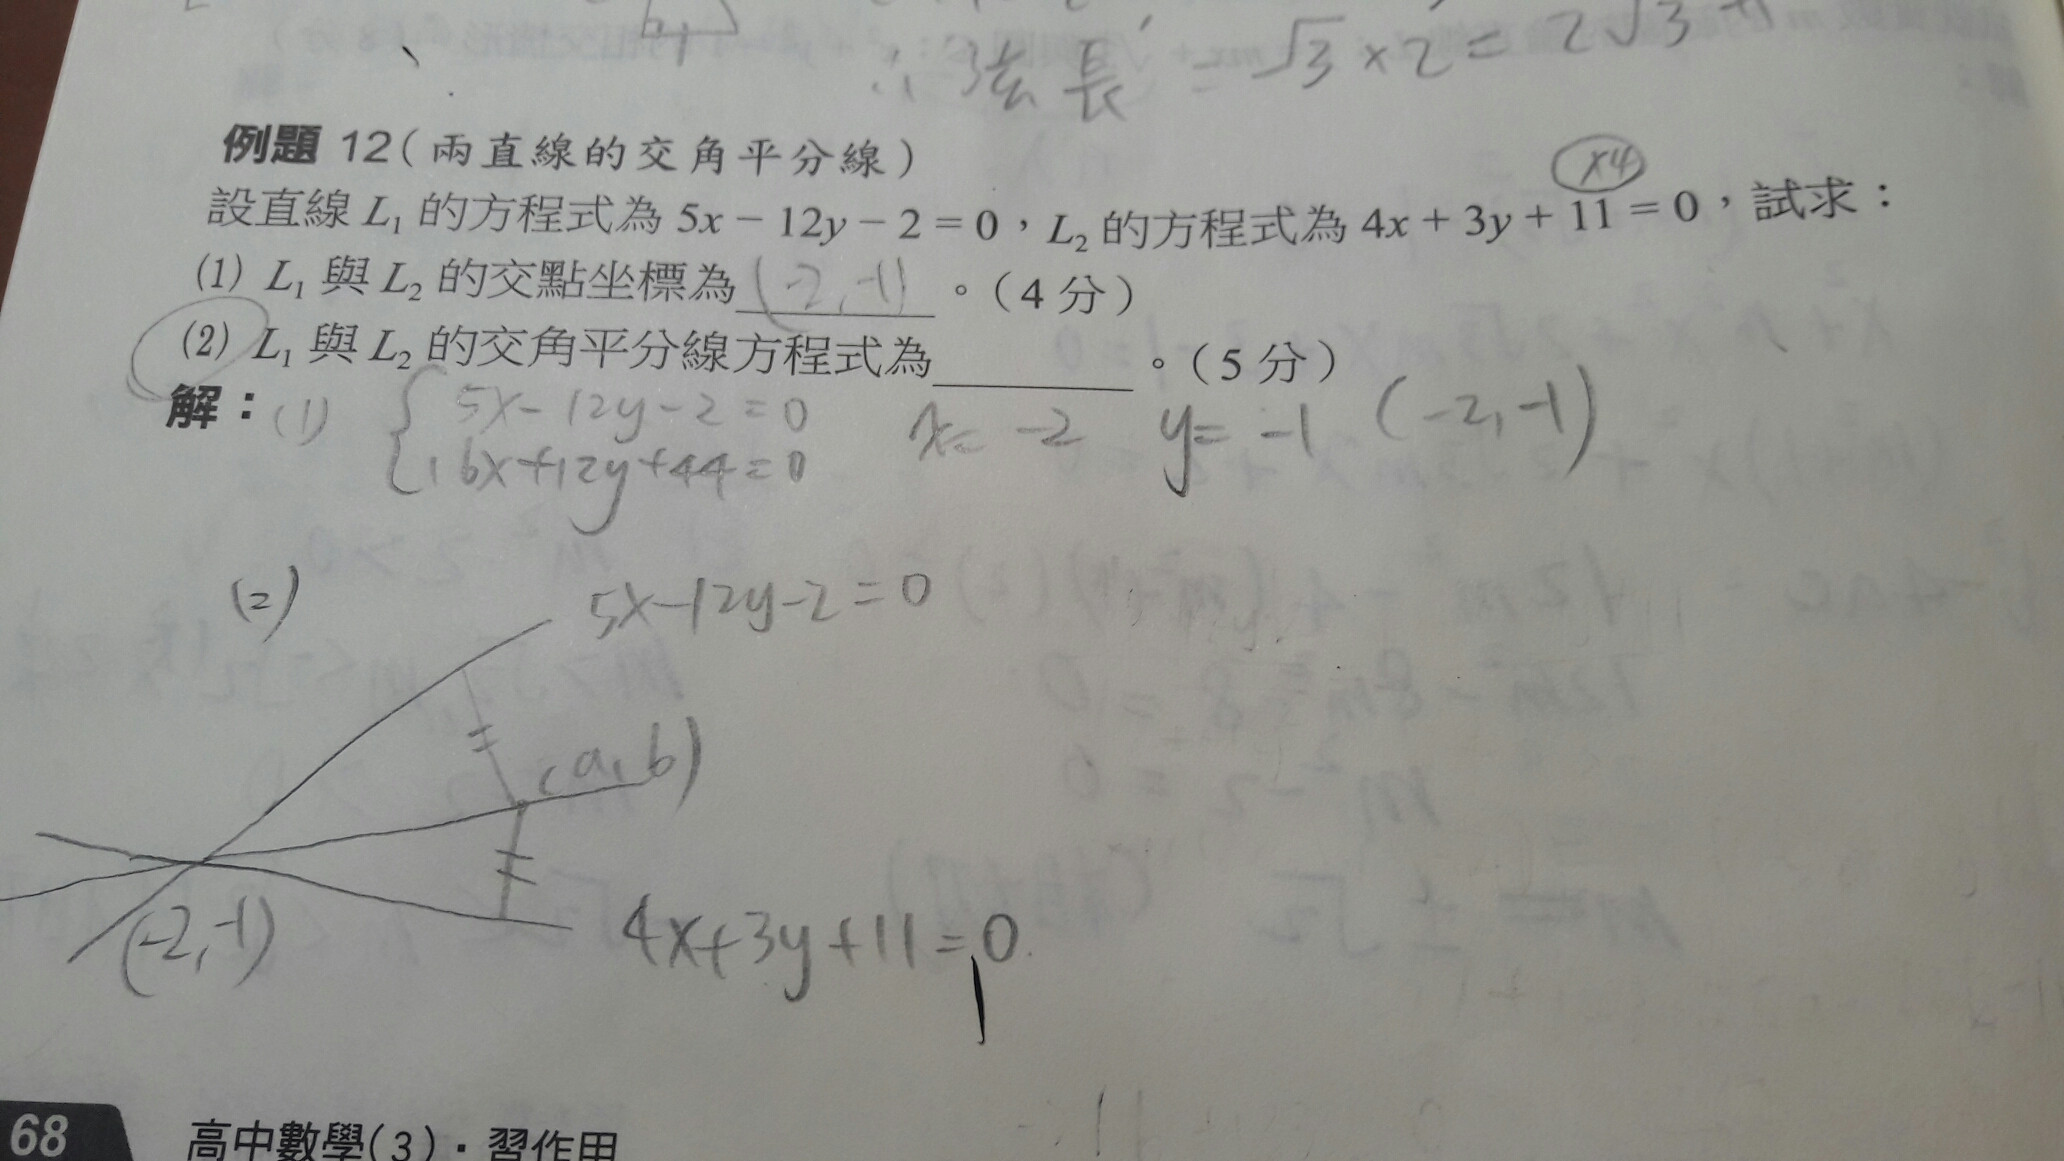 ∴弦長 = √3 × 2 = 2√3
例題 12(兩直線的交角平分線)
×4
設直線 L₁ 的方程式為 5x − 12y − 2 = 0，L₂ 的方程式為 4x + 3y + 11 = 0，試求：
(1) L₁ 與 L₂ 的交點坐標為 (-2,-1) 。(4 分)
(2) L₁ 與 L₂ 的交角平分線方程式為＿＿＿＿。(5 分)
解：(1) { 5x-12y-2=0 x= -2 y= -1 (-2,-1)
16x+12y+44=0
(2) 5x-12y-2=0
(a, b)
(-2,-1) 4x+3y+11=0
68 高中數學(3)．習作甲